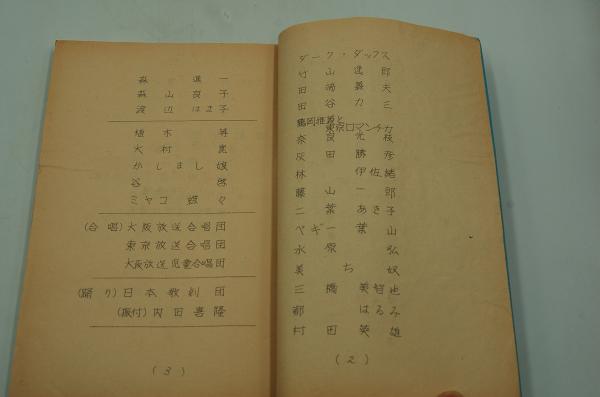 ダーク・ダックス
竹山逸郎
田端義夫
田谷力三
鶴岡雅義と
東京ロマンチカ
奈良光枝
灰田勝彦
林伊佐緒
藤山一郎
二葉あき子
ペギー葉山
水原弘
美ち奴
三橋美智也
都はるみ
村田英雄
(2)
森進一
森山良子
渡辺はま子
植木等
大村崑
かしまし娘
谷啓
ミヤコ蝶々
(合唱)大阪放送合唱団
東京放送合唱団
大阪放送児童合唱団
(踊り)日本歌劇団
(振付)内田喜隆
(3)